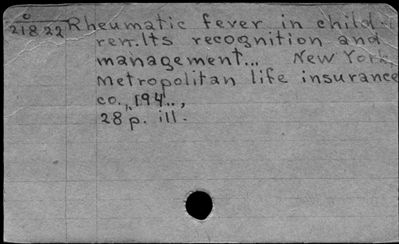 o
21822 Rheumatic fever in child-
ren. Its recognition and
management... New York,
Metropolitan life insurance
co., 194..,
28 p. ill.